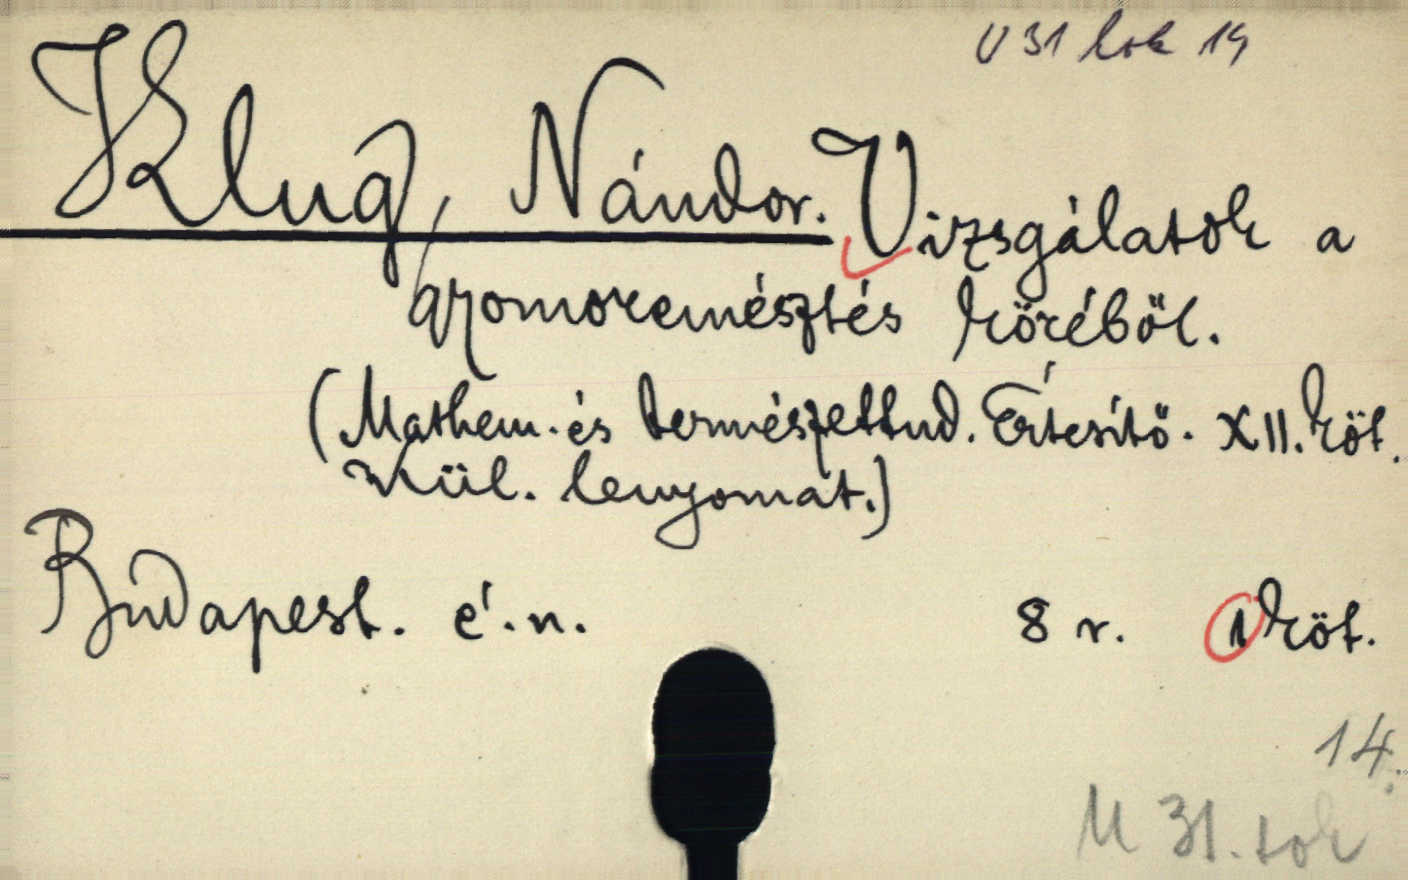 U 31 tok 14
Klug, Nándor. Vizsgálatok a
gyomoremésztés köréből.
(Mathem. és természettud. Értesítő. XII. köt.
Kül. lenyomat.)
Budapest. é. n. 8 r. 1 köt.
14.
U 31. tok